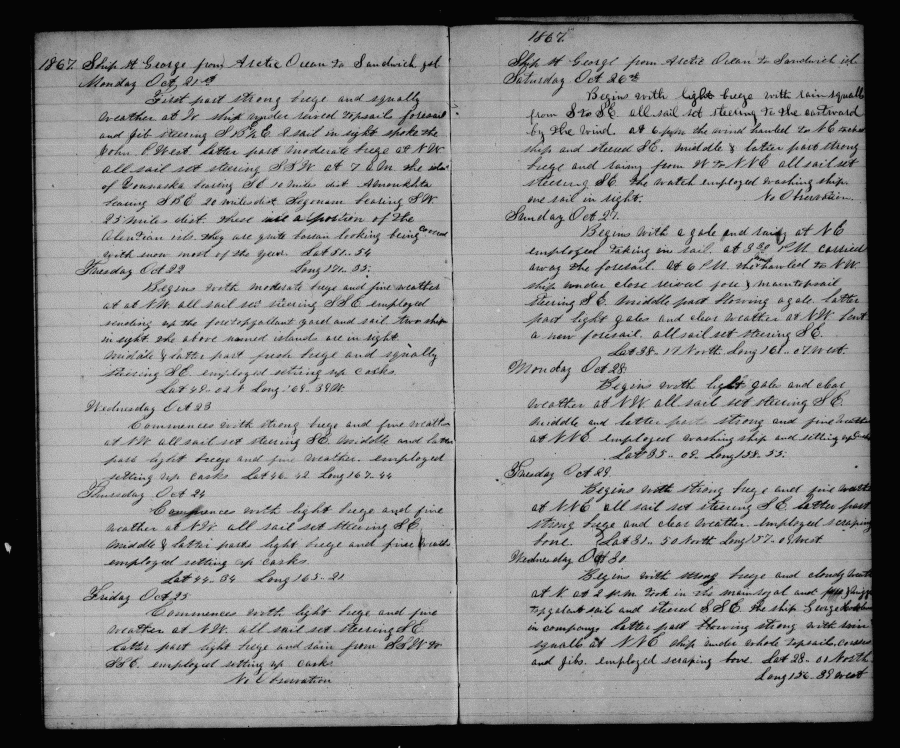 1867. Ship St George from Arctic Ocean to Sandwich isl
Monday Oct 21st
First part strong breze and squally
weather at W ship under reived topsails foresail
and jib steering S B E 2 sail in sight spoke the
John P. West. latter part moderate breze at N.W
all sail set steering S.S.W. at 7 A.M. the isle
of Oonnaska bearing SE 10 miles dist
bearing S B E 20 miles dist. bearing S W.
25 miles dist. these are a portion of the
Aleutian isls. they are quite barran looking being covered
with snow most of the year. Lat 51.. 54
Tuesday Oct 22 Long 171.. 35.
Begins with moderate breze and fine weather
at at N.W. all sail set steering S.S.E. employed
sending up the foretopgallant yard and sail two ships
in sight. the above named islands are in sight.
Middle & latter part fresh breze and squally
steering S.E. employed setting up casks.
Lat 49.. 02 N Long 69.. 39 W.
Wednesday Oct 23
Commences with strong breze and fine weather
at N.W. all sail set steering SE. Middle and latter
part light breze and fine weather. employed
setting up casks Lat 46.. 42. Long 167.. 44
Thursday Oct 24
Commences with light breze and fine
weather at N.W. all sail set steering S.E.
Middle & latter parts light breze and fine weather
employed setting up casks
Lat 44.. 34 Long 165.. 21
Friday Oct 25
Commences with light breze and fine
weather at N.W. all sail set steering S.E.
latter part light breze and rain from S.S.W. to
S.S.E. employed setting up casks
No Observation
1867.
Ship St George from Arctic Ocean to Sandwich isl
Saturday Oct 26th
Begins with light breze with rain squalls
from S to S.E. all sail set steering to the eastward
by the wind. at 6 p.m. the wind hauled to N.E. tacked
ship and steered S.E. middle & latter part strong
breze and rainy from W to N.N.E all sail set
steering S.E. the watch employed washing ship.
one sail in sight. No Observation.
Sunday Oct 27.
Begins with a gale and rain at N.E
employed taking in sail. at 3 30 P.M. carried
away the foresail. at 6 P.M. the wind hauled to N.W
ship under close reived fore & maintopsail
steering S.E. middle part blowing a gale. latter
part light gales and clear weather at N.W. bent
a new foresail. all sail set steering S.E.
Lat 38.. 17 North. Long 161.. 07 West.
Monday Oct 28.
Begins with light gales and clear
weather at N.W. all sail set steering S.E.
middle and latter parts strong and fine weather
at N.N.E. employed washing ship and setting up
Lat 35.. 09. Long 158.. 55.
Tuesday Oct 29.
Begins with strong breze and fine weather
at N.N.E. all sail set steering S.E. latter part
strong breze and clear weather. employed scraping
bone. Lat 31.. 50 North Long 157.. 09 West
Wednesday Oct 30.
Begins with strong breze and cloudy weather
at N. at 2 p.m. took in the mainroyal and
topgalant sails and steered S.S.E. the ship George Howland
in company latter part blowing strong with rain
squalls at N.N.E. ship under whole topsails. courses
and jibs. employed scraping bone. Lat 28.. 01 North
Long 156.. 39 West